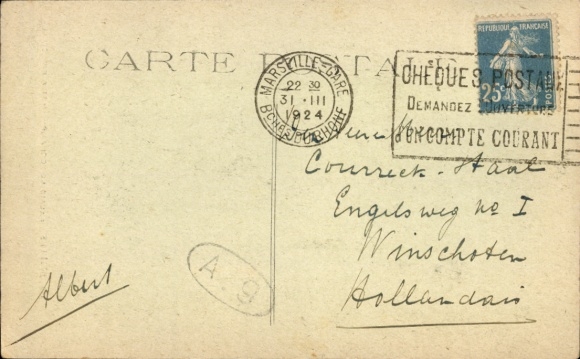 CARTE POSTALE
REPUBLIQUE FRANÇAISE
25c
POSTES
MARSEILLE-GARE
22 30
31 · III
1924
BCHES DU RHONE
CHÈQUES POSTAUX
DEMANDEZ L'OUVERTURE
D'UN COMPTE COURANT
Courreck-Staal
Engelsweg No I
Winschoten
Hollandais
Albert
A.9